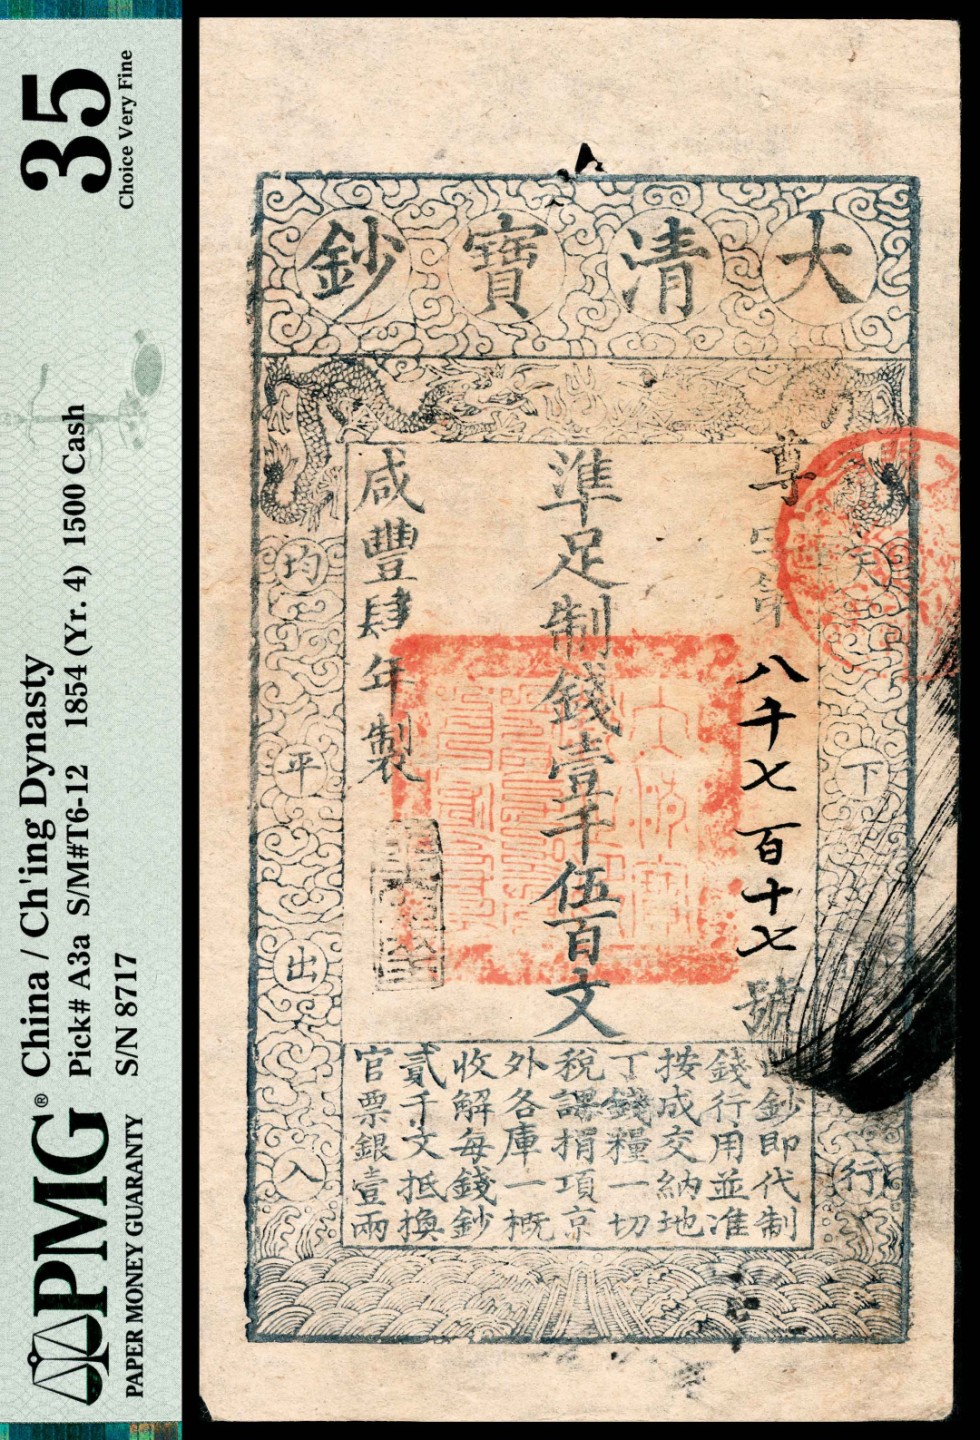 35
Choice Very Fine
China / Ch'ing Dynasty
Pick# A3a S/M#T6-12 1854 (Yr. 4) 1500 Cash
S/N 8717
PMG®
PAPER MONEY GUARANTY
大清寶鈔
天下
行
尊字第八千七百十七號
準足制錢壹千伍百文
咸豐肆年製
均平出入
鈔即代制
錢行用並准
按成交納地
丁錢糧一切
稅課捐項京
外各庫一概
收解每錢鈔
貳千文抵換
官票銀壹兩